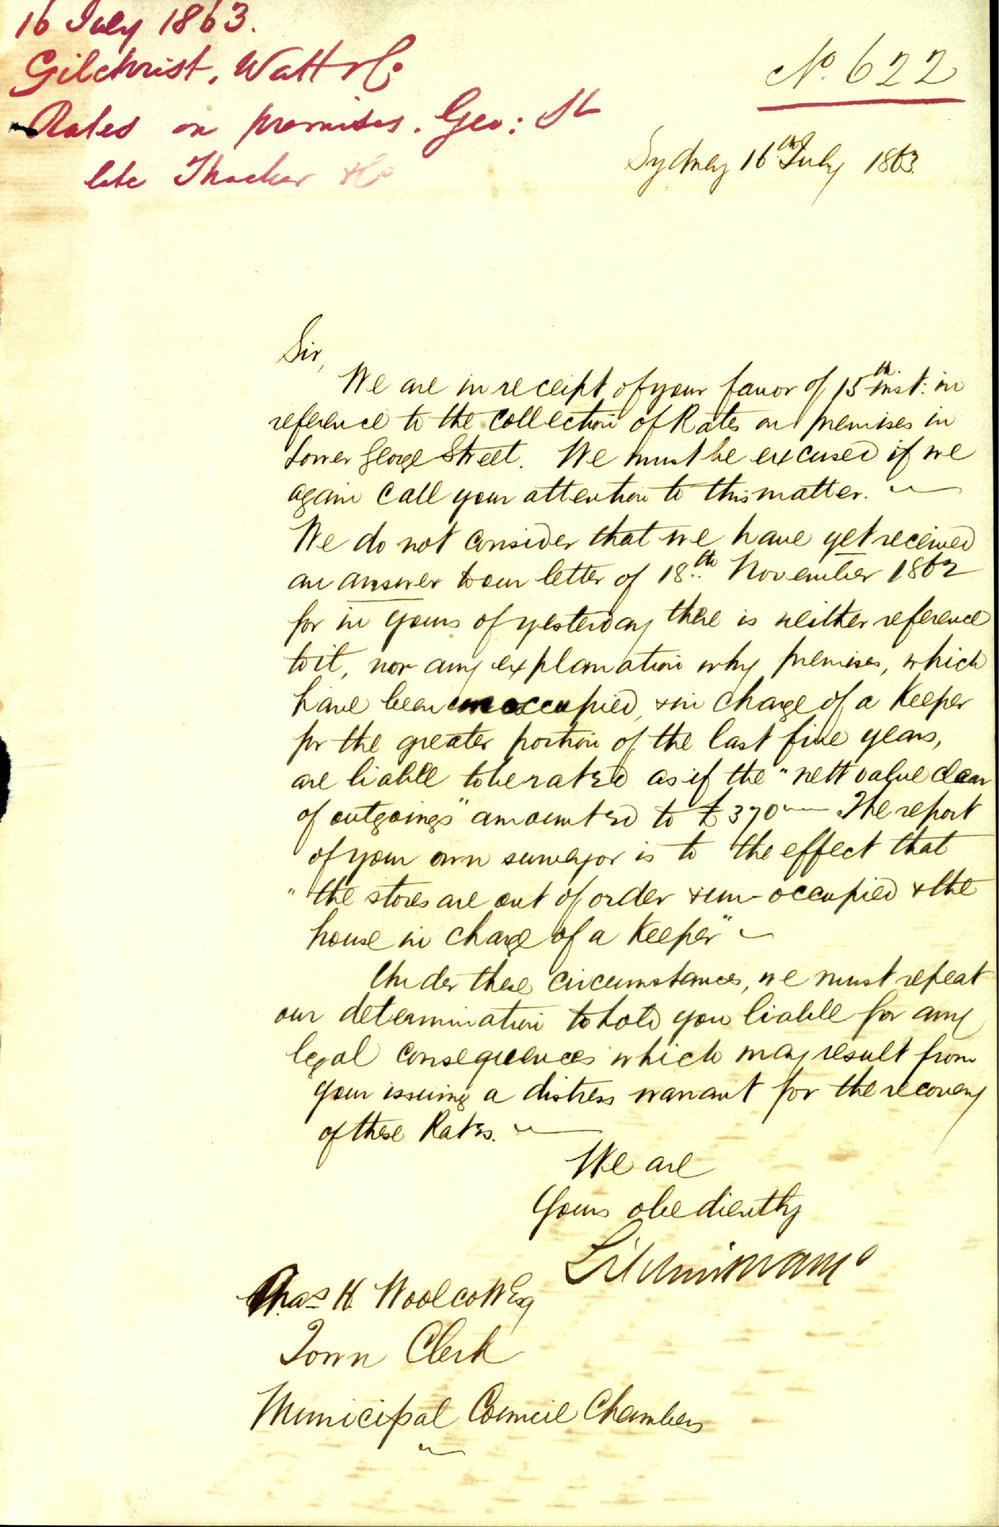 16 July 1863.
Gilchrist, Watt & Co
Rates on premises. Geo: St
late Thacker & Co
No. 622
Sydney 16th July 1863.
Sir,
We are in receipt of your favor of 15th inst: in
reference to the collection of Rates on premises in
Lower George Street. We must be excused if we
again call your attention to this matter. —
We do not consider that we have yet received
an answer to our letter of 18th November 1862
for in yours of yesterday there is neither reference
to it, nor any explanation why premises, which
have been unoccupied, & in charge of a Keeper
for the greater portion of the last five years,
are liable to be rated as if the "nett value clear
of outgoings" amounted to £370 — The report
of your own surveyor is to the effect that
"the stores are out of order & un-occupied & the
house in charge of a Keeper" —
Under these circumstances, we must repeat
our determination to hold you liable for any
legal consequences which may result from
your issuing a distress warrant for the recovery
of these Rates. —
We are
Yours obediently
Chas H Woolcott Esq
Town Clerk
Municipal Council Chambers